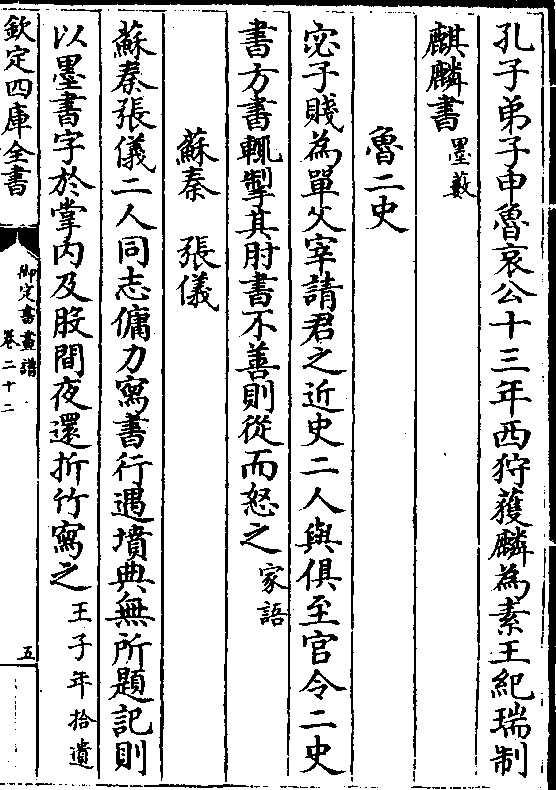 孔子弟子申魯哀公十三年西狩獲麟為素王紀瑞制
麒麟書墨藪
魯二史
宓子賤為單父宰請君之近史二人與俱至官令二史
書方書輒掣其肘書不善則從而怒之家語
蘇秦　張儀
蘇秦張儀二人同志傭力寫書行遇墳典無所題記則
以墨書字於掌內及股間夜還折竹寫之王子年拾遺
欽定四庫全書
御定書畫譜
卷二十二
五